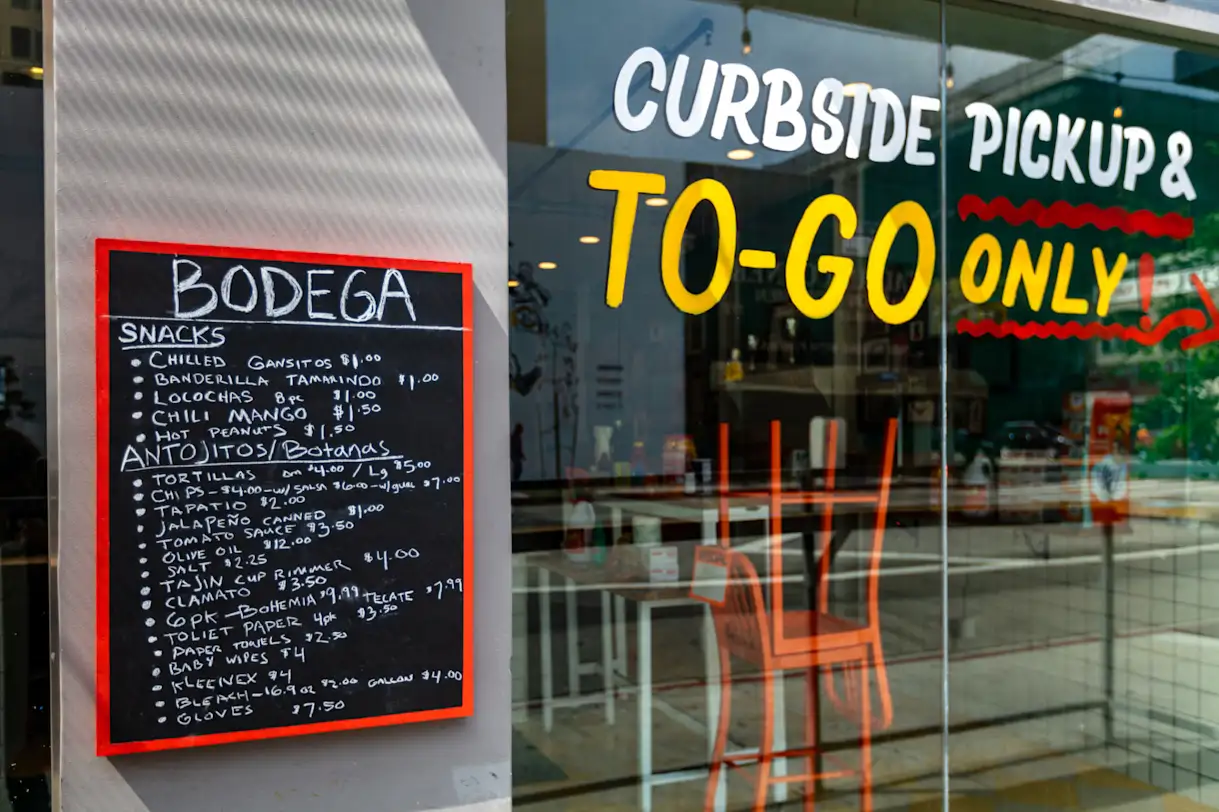 BODEGA
SNACKS
• CHILLED GANSITOS $1.00
• BANDERILLA TAMARINDO $1.00
• LOCOCHAS 8pc $1.00
• CHILI MANGO $1.50
• HOT PEANUTS $1.50
ANTOJITOS/Botanas
• TORTILLAS Dn $4.00 / Lg $5.00
• CHIPS - $4.00 - w/ SALSA $6.00 - w/ guac $7.00
• TAPATIO $2.00
• JALAPEÑO CANNED $1.00
• TOMATO SAUCE $3.50
• OLIVE OIL $12.00
• SALT $2.25
• TAJIN CUP RIMMER $4.00
• CLAMATO $3.50
• 6pk - BOHEMIA $9.99 TECATE $7.99
• TOLIET PAPER 4pk $3.50
• PAPER TOWELS $2.50
• BABY WIPES $4
• KLEENEX $4
• BLEACH - 16.9 oz $2.00 GALLON $4.00
• GLOVES $7.50
CURBSIDE PICKUP &
TO-GO ONLY!